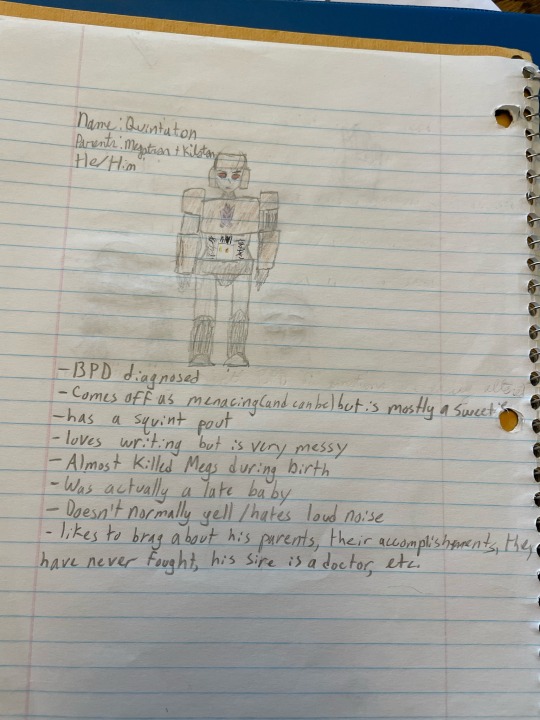 Name: Quintaton
Parents: Megatron + Kilston
He/Him
-BPD diagnosed
-Comes off as menacing(and can be) but is mostly a sweet
-has a squint pout
-loves writing but is very messy
-Almost Killed Megs during birth
-Was actually a late baby
-Doesn't normally yell/hates loud noise
-likes to brag about his parents, their accomplishments, they
have never fought, his sire is a doctor, etc.